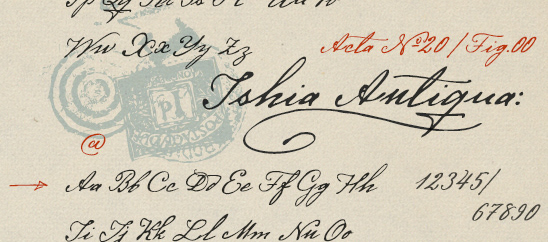 Ww Xx Yy Zz
Acta Nº20 / Fig.00
Ishia Antiqua:
@
Aa Bb Cc Dd Ee Ff Gg Hh
12345/
67890
Ii Jj Kk Ll Mm Nn Oo